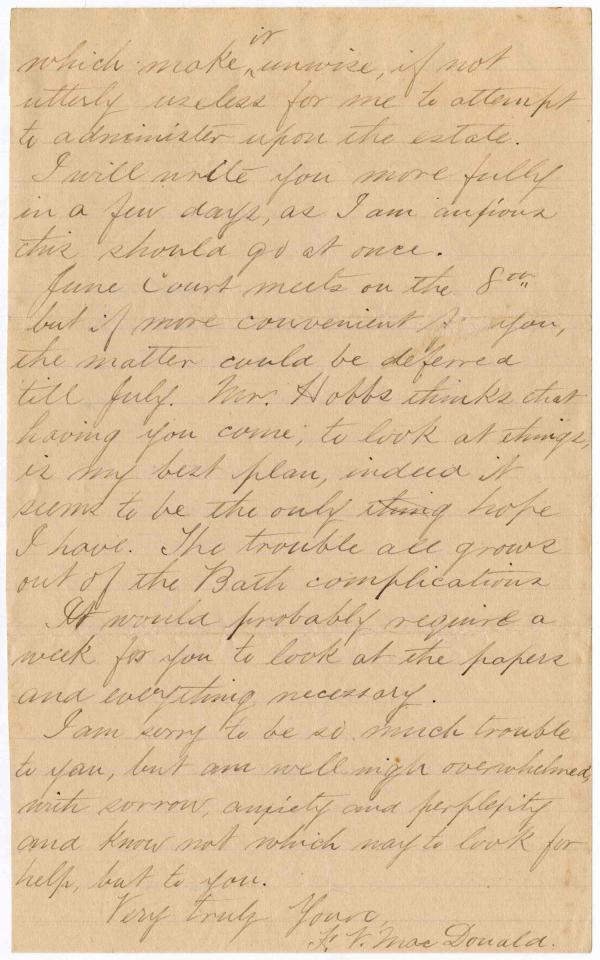 which make it unwise, if not
utterly useless for me to attempt
to administer upon the estate.
I will write you more fully
in a few days, as I am anxious
this should go at once.
June Court meets on the 8th
but if more convenient to you,
the matter could be deferred
till July. Mr. Hobbs thinks that
having you come, to look at things,
is my best plan, indeed it
seems to be the only thing hope
I have. The trouble all grows
out of the Bath complications
It would probably require a
week for you to look at the papers
and everything necessary.
I am sorry to be so much trouble
to you, but am well nigh overwhelmed,
with sorrow, anxiety and perplexity
and know not which way to look for
help, but to you.
Very truly Yours,
F. V. MacDonald.